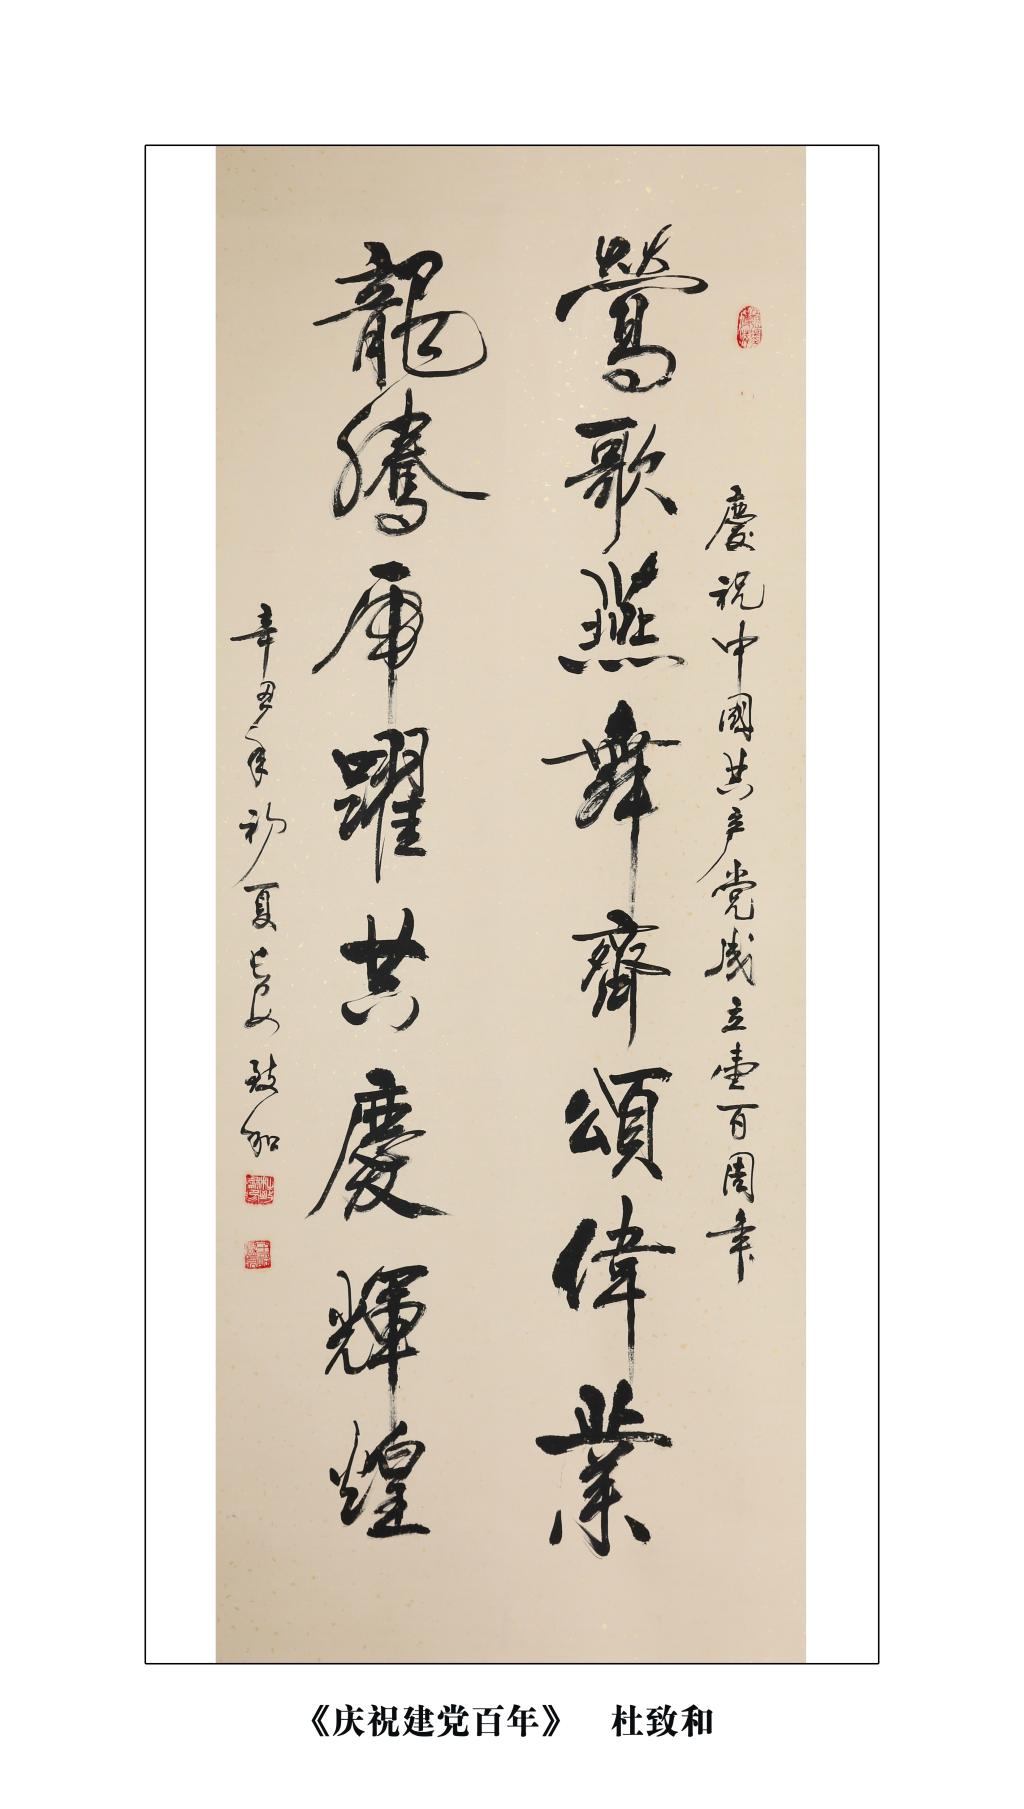 慶祝中國共产党成立壹百周年
鶯歌燕舞齊頌偉業
龍騰虎躍共慶輝煌
辛丑年初夏 致和
《庆祝建党百年》 杜致和